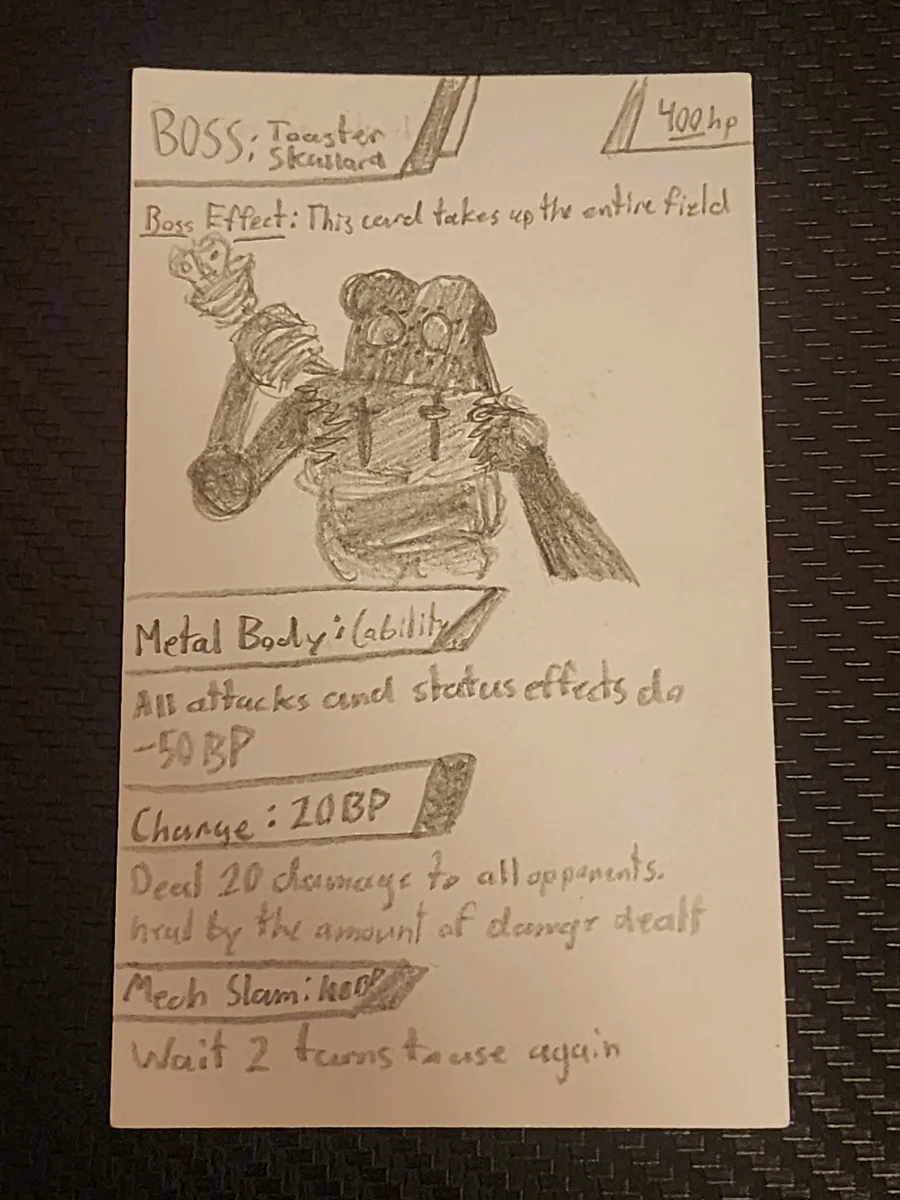 BOSS: Toaster
Skullard
400hp
Boss Effect: This card takes up the entire field
Metal Body: (ability
All attacks and status effects do
-50 BP
Charge: 20BP
Deal 20 damage to all opponents.
heal by the amount of damage dealt
Mech Slam:
Wait 2 turns to use again